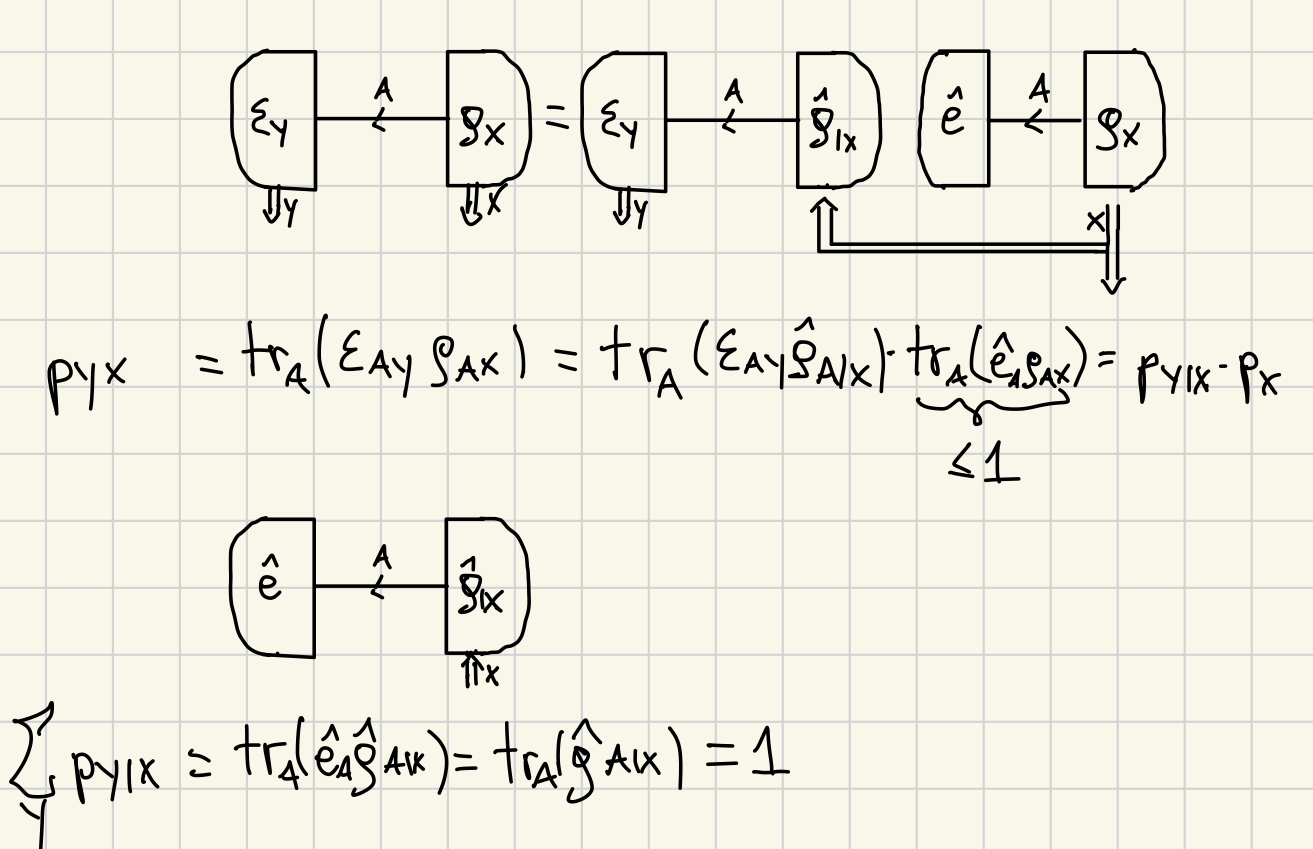 ξy A ρx = ξy A ρ̂|x ê A ρx
y x y x
pyx = trA(ξAy ρAx) = trA(ξAy ρ̂A|x) · trA(êA ρAx) = py|x · px
≤ 1
ê A ρ̂|x
x
∑y py|x = trA(êA ρ̂A|x) = trA(ρ̂A|x) = 1